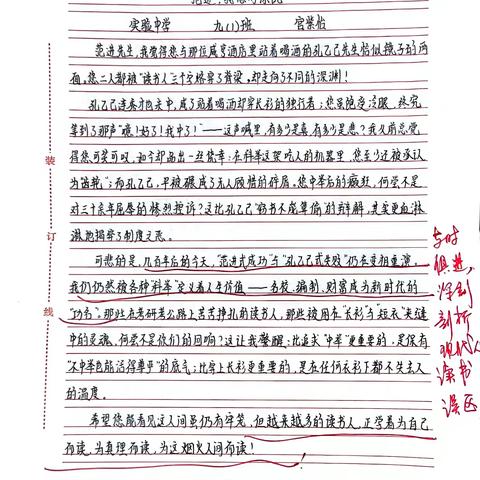 实验中学 九(1)班 官紫怡
范进先生,我觉得您与那位咸亨酒店里站着喝酒的孔乙己先生恰似镜子的两
面。您二人都被"读书人"三个字挤弯了脊梁,却走向了不同的深渊!
孔乙己连秀才尚未中,成了站着喝酒却穿长衫的独行者;您虽饱受冷眼,终究
等到了那声"噫!好了!我中了!"——这声喊里,有多少是喜,有多少是悲?我从前总觉
得您可笑可叹,如今却品出一丝凭幸:在科举这架吃人的机器里,您至少还被承认
为齿轮";而孔乙己,早被碾成了无人顾惜的碎屑。您中举后的癫狂,何尝不是
对三十余年屈辱的惨烈控诉?这比孔乙己"窃书不能算偷"的辩解,其实更血淋
淋地揭穿了制度之恶。
可悲的是,几百年后的今天,"范进式成功"与"孔乙己式失败"仍在变相重演。
我们仍然被各种"科举"定义着人生价值——名校、编制、财富成为新时代的
"功名"。那些在考研考公路上苦苦挣扎的读书人,那些被困在"长衫"与"短衣"夹缝
中的灵魂,何尝不是你们的回响?这让我警醒:比追求"中举"更重要的,是保有
"不中举也能活得尊严"的底气;比穿上长衫更重要的,是在任何长衫下都不失去人
的温度。
希望您能看见这人间虽仍有牢笼,但越来越多的读书人,正学着为自己
而读,为真理而读,为这烟火人间而读!
装
订
线
与时
俱进,
深刻
剖析
现代人
读书
误区